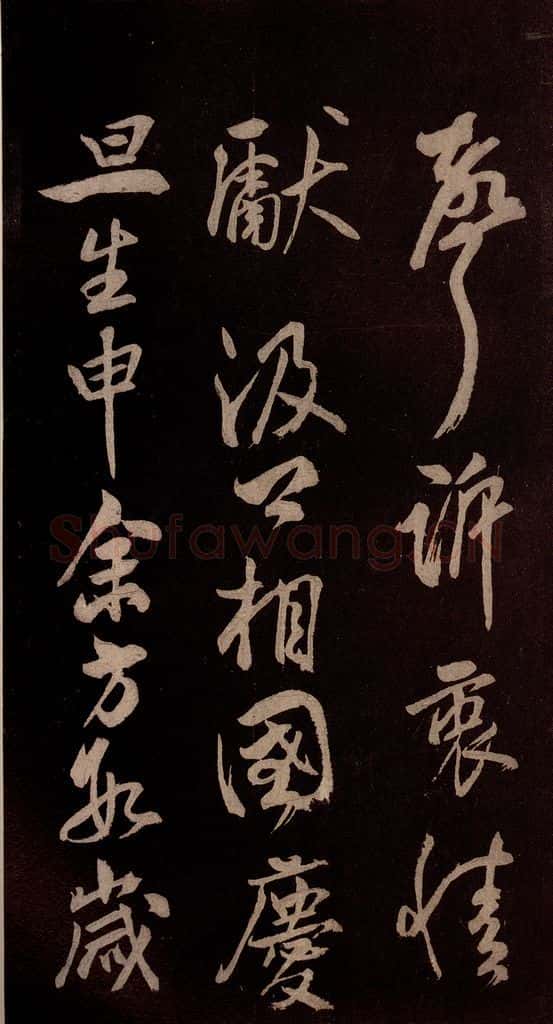 訴衷情
獻汲公相國慶
旦生申余方歲
Shufawang.CN